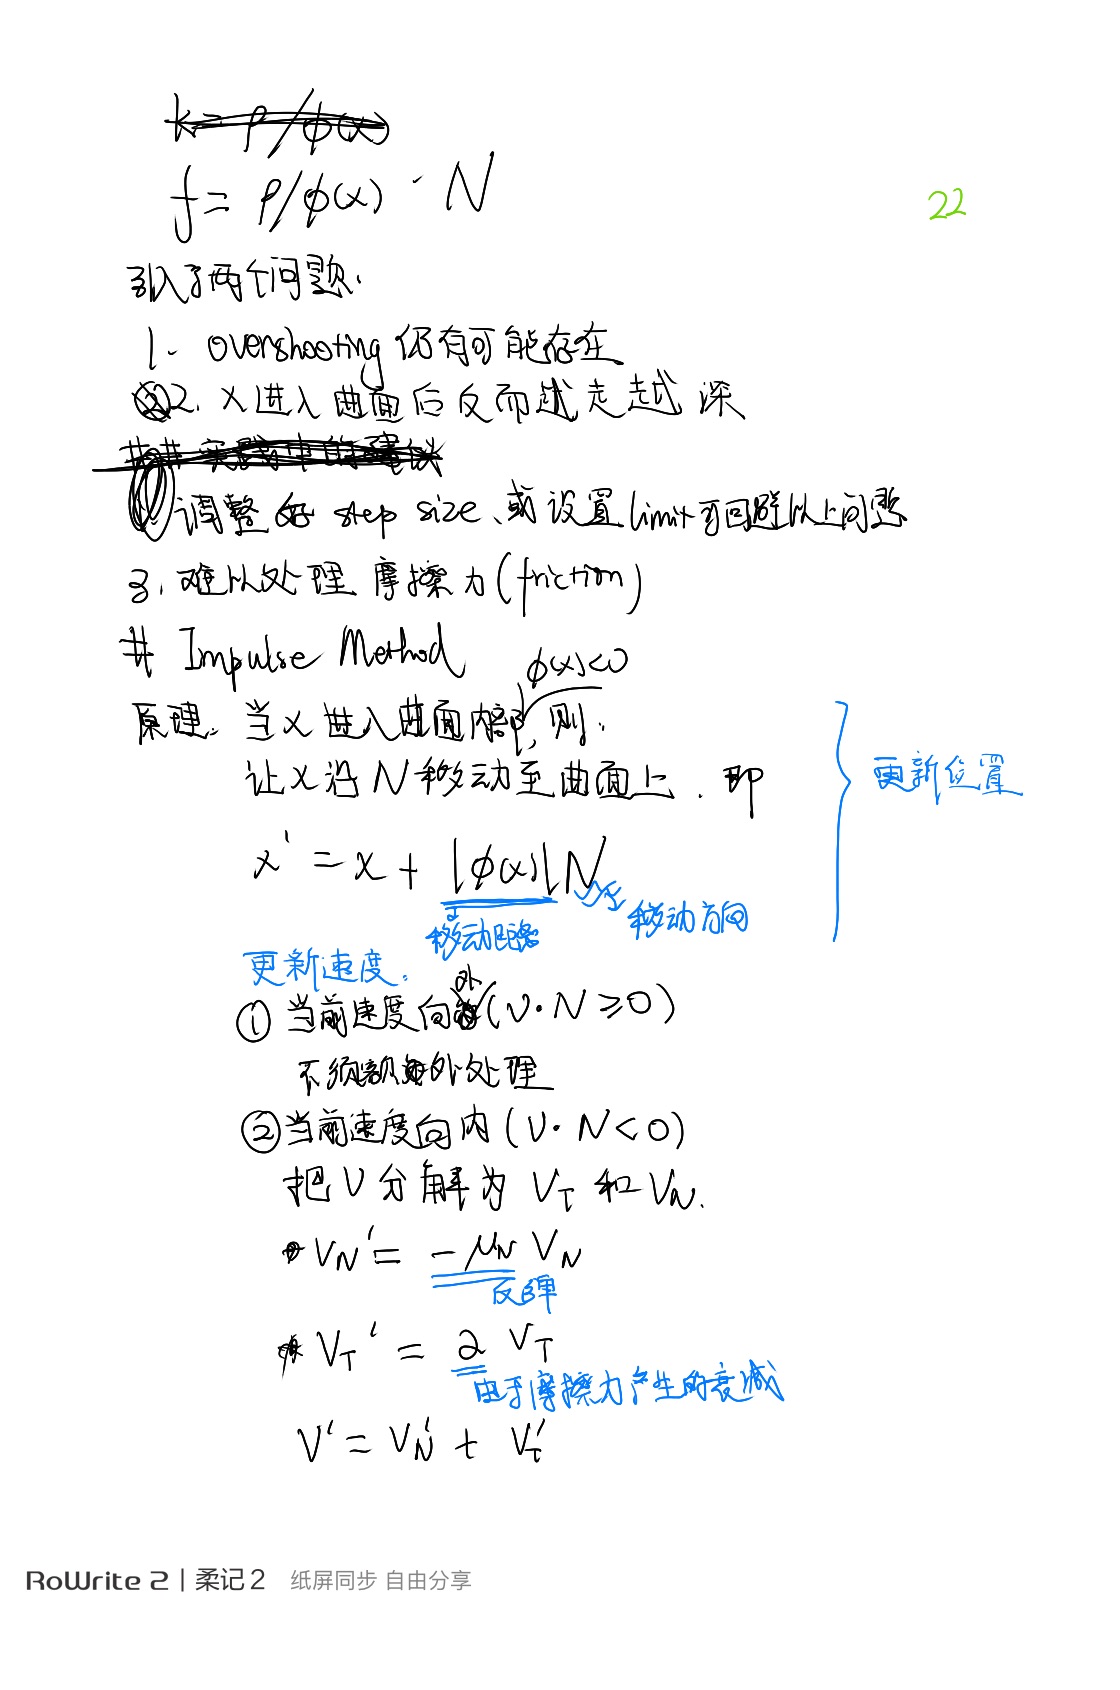 k = ρ/φ(x)
f = ρ/φ(x) · N
22
引入了两个问题.
1. overshooting 仍有可能存在
2. x进入曲面后反而越走越深
## 实践中的建议
调整好 step size、或设置 limit 可回避以上问题
3. 难以处理摩擦力(friction)
# Impulse Method
φ(x)<0
原理. 当x进入曲面内部, 则:
让x沿N移动至曲面上. 即
更新位置
x' = x + |φ(x)| N
移动距离
移动方向
更新速度:
① 当前速度向外 (V·N ≥ 0)
不须额外处理
② 当前速度向内 (V·N < 0)
把V分解为 V_T 和 V_N.
* V_N' = -μ_N V_N
反弹
* V_T' = a V_T
由于摩擦力产生的衰减
V' = V_N' + V_T'
RoWrite 2 | 柔记 2 纸屏同步 自由分享